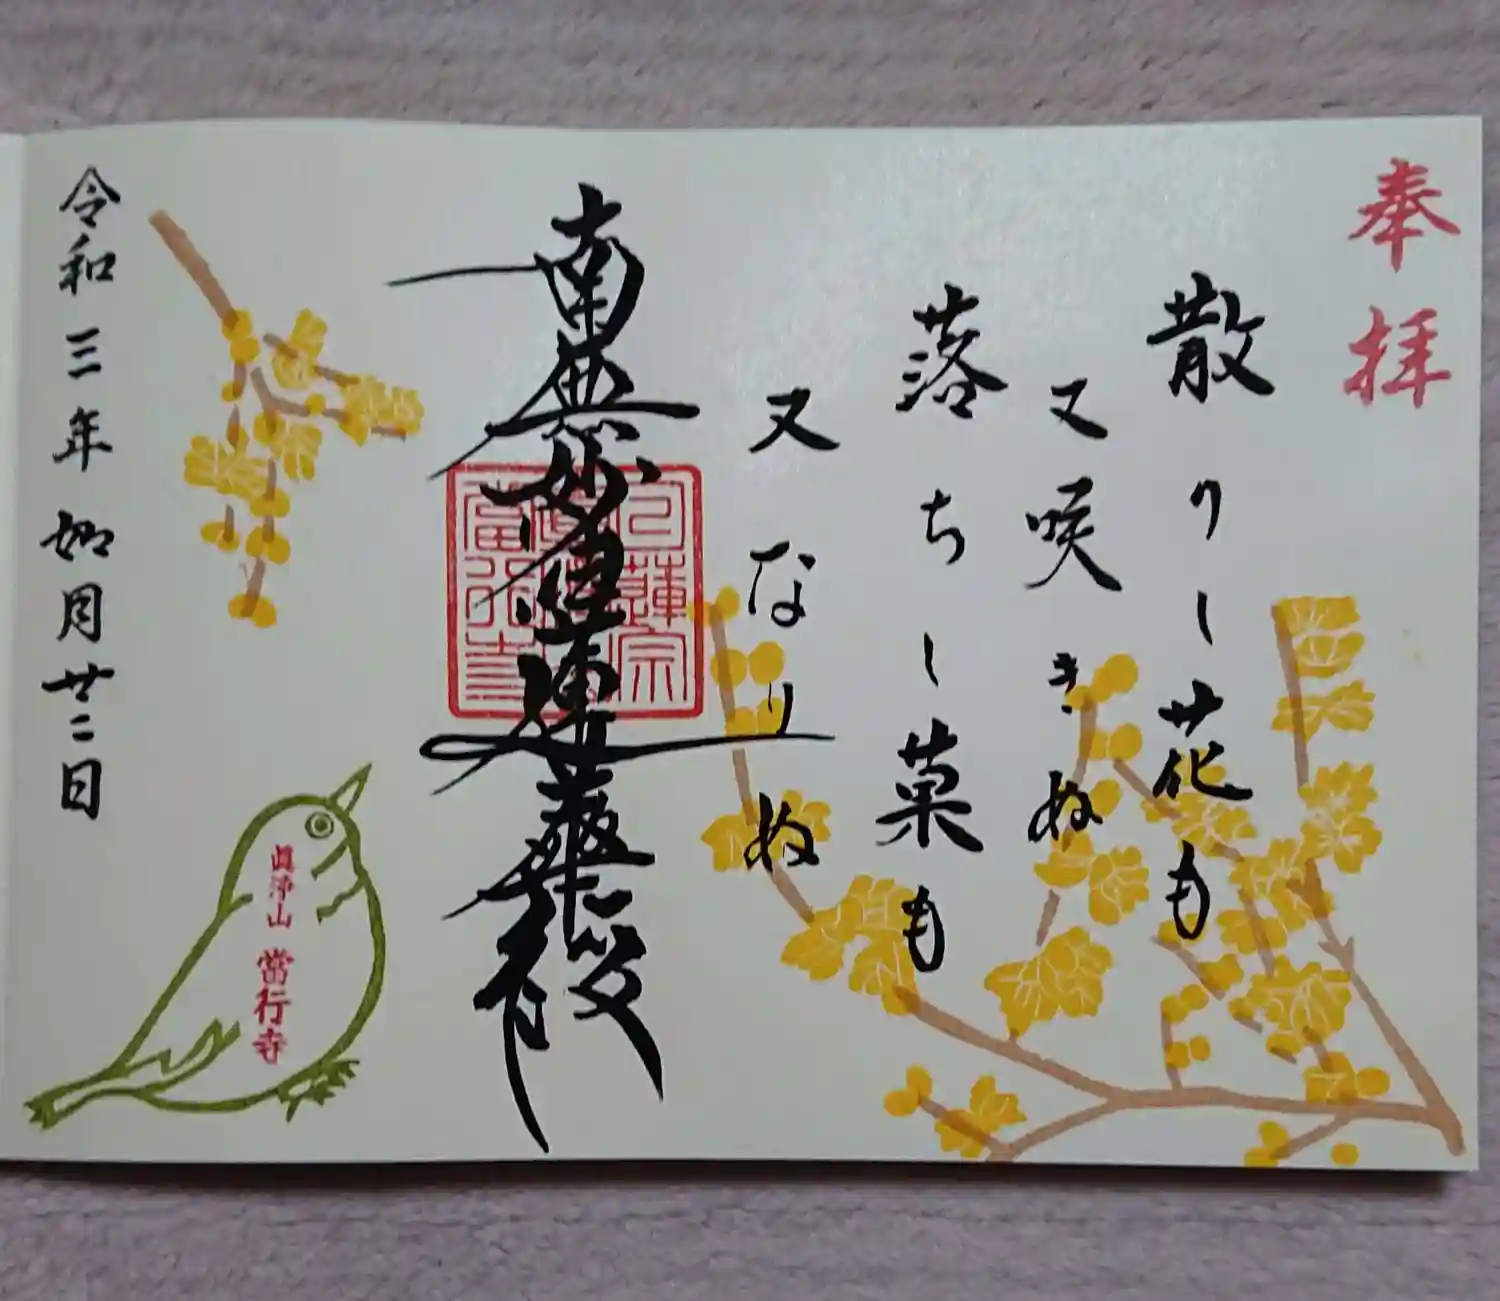 奉拝
散りし花も
又咲きぬ
落ちし菓も
又なりぬ
南無妙法蓮華経
日蓮宗
當行寺
令和三年如月廿二日
眞浄山
當行寺